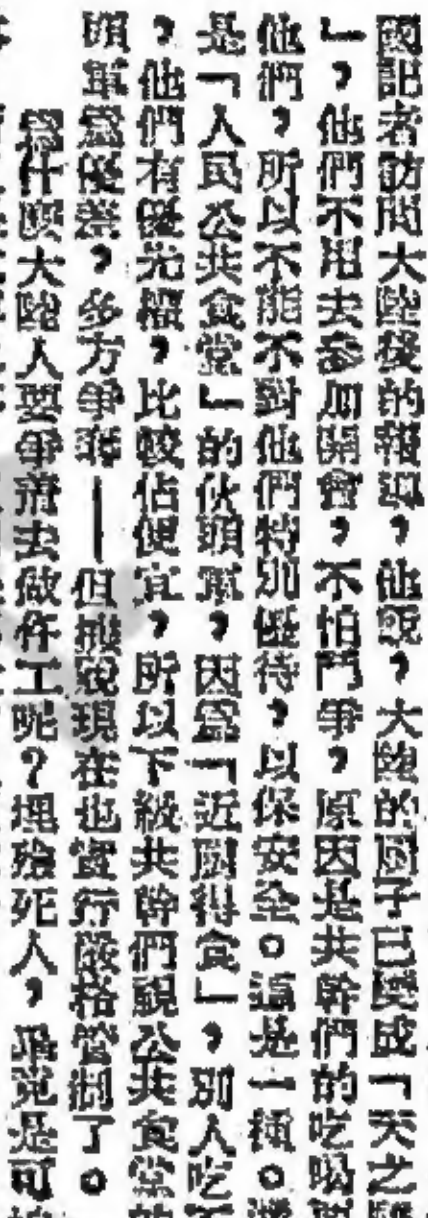 國記者訪問大陸後的報導，他說，大陸的厨子已變成「天之驕
」，他們不用去參加開會，不怕鬥爭，原因是共幹們的吃喝
他們，所以不能不對他們特別優待，以保安全。這是一種。
是「人民公共食堂」的伙頭軍，因爲「近厨得食」，別人吃不
，他們有優先權，比較佔便宜，所以下級共幹們視公共食堂
頭軍爲優差，多方爭奪——但據說現在也實行嚴格管制了。
爲什麽大陸人要爭着去做仵工呢？埋殮死人，畢竟是可